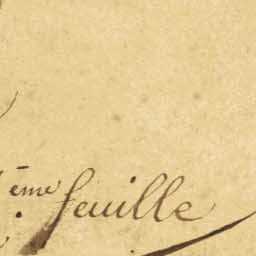 ème feuille